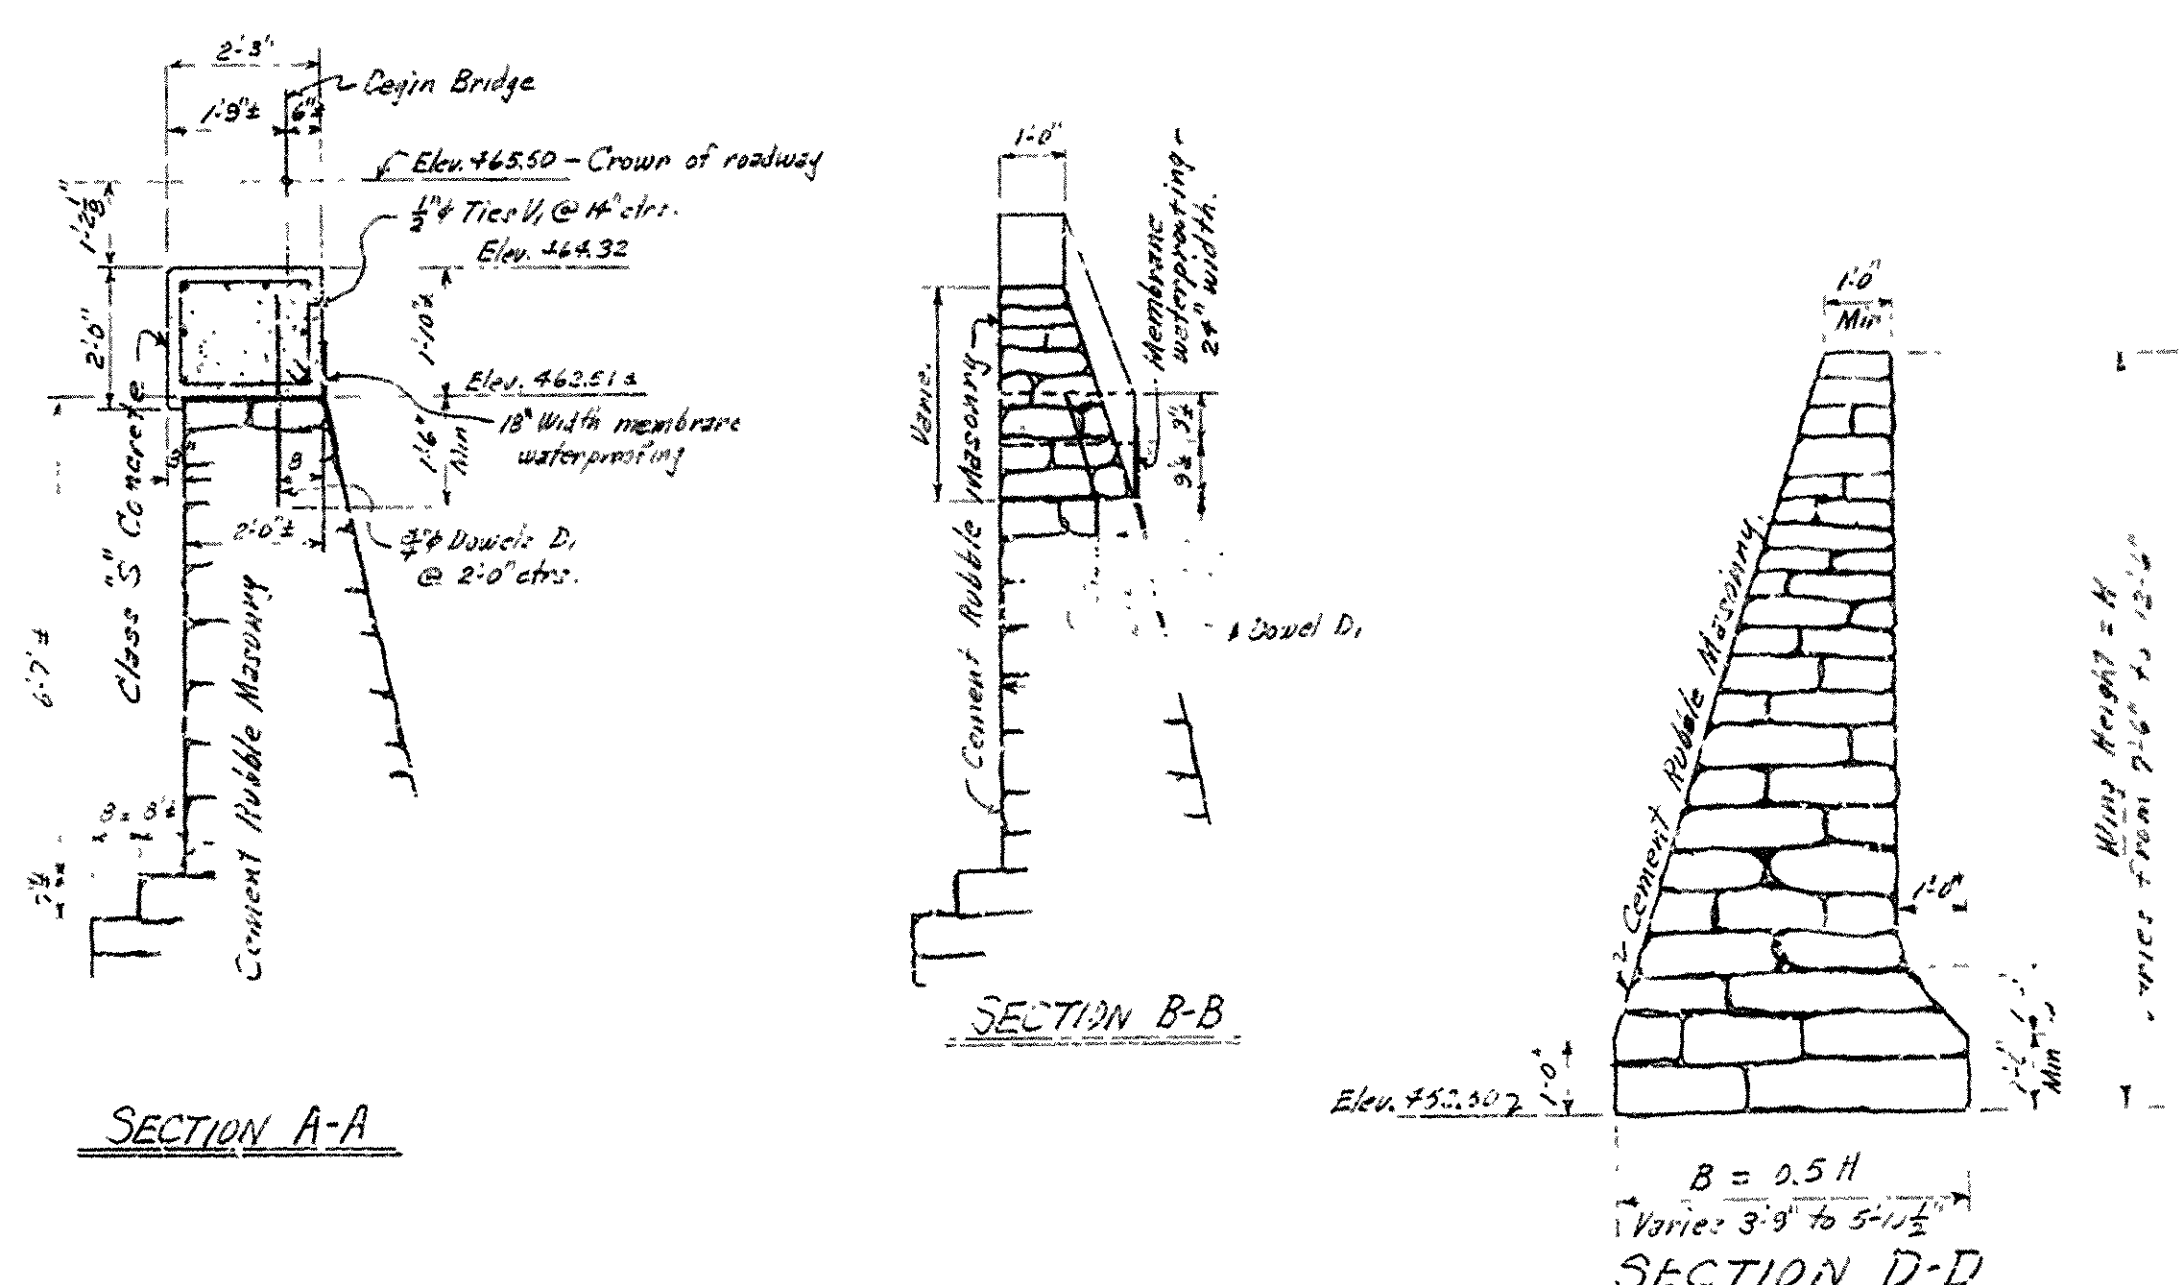 2'-3"
Begin Bridge
1'-9"± 6"±
Elev. 465.50 - Crown of roadway
1'-2 1/8"
1/2"φ Ties V1 @ 14" ctrs.
Elev. 464.32
2'-0"
1'-10"±
Elev. 462.51±
18" Width membrane
waterproofing
1'-6"
Min
8"
2'-0"±
3/4"φ Dowels D1
@ 2'-0" ctrs.
Class "S" Concrete
Cement Rubble Masonry
6'-7"±
SECTION A-A
1'-0"
Membrane
waterproofing
24" width.
Varies
Cement Rubble Masonry
9"±
9"±
Dowel D1
SECTION B-B
1'-0"
Min
Cement Rubble Masonry
1'-0"
Wing Height = H
Varies from 7'-6" to
1'-0"
Min
Elev. 452.50
B = 0.5 H
Varies 3'-9" to
SECTION D-D